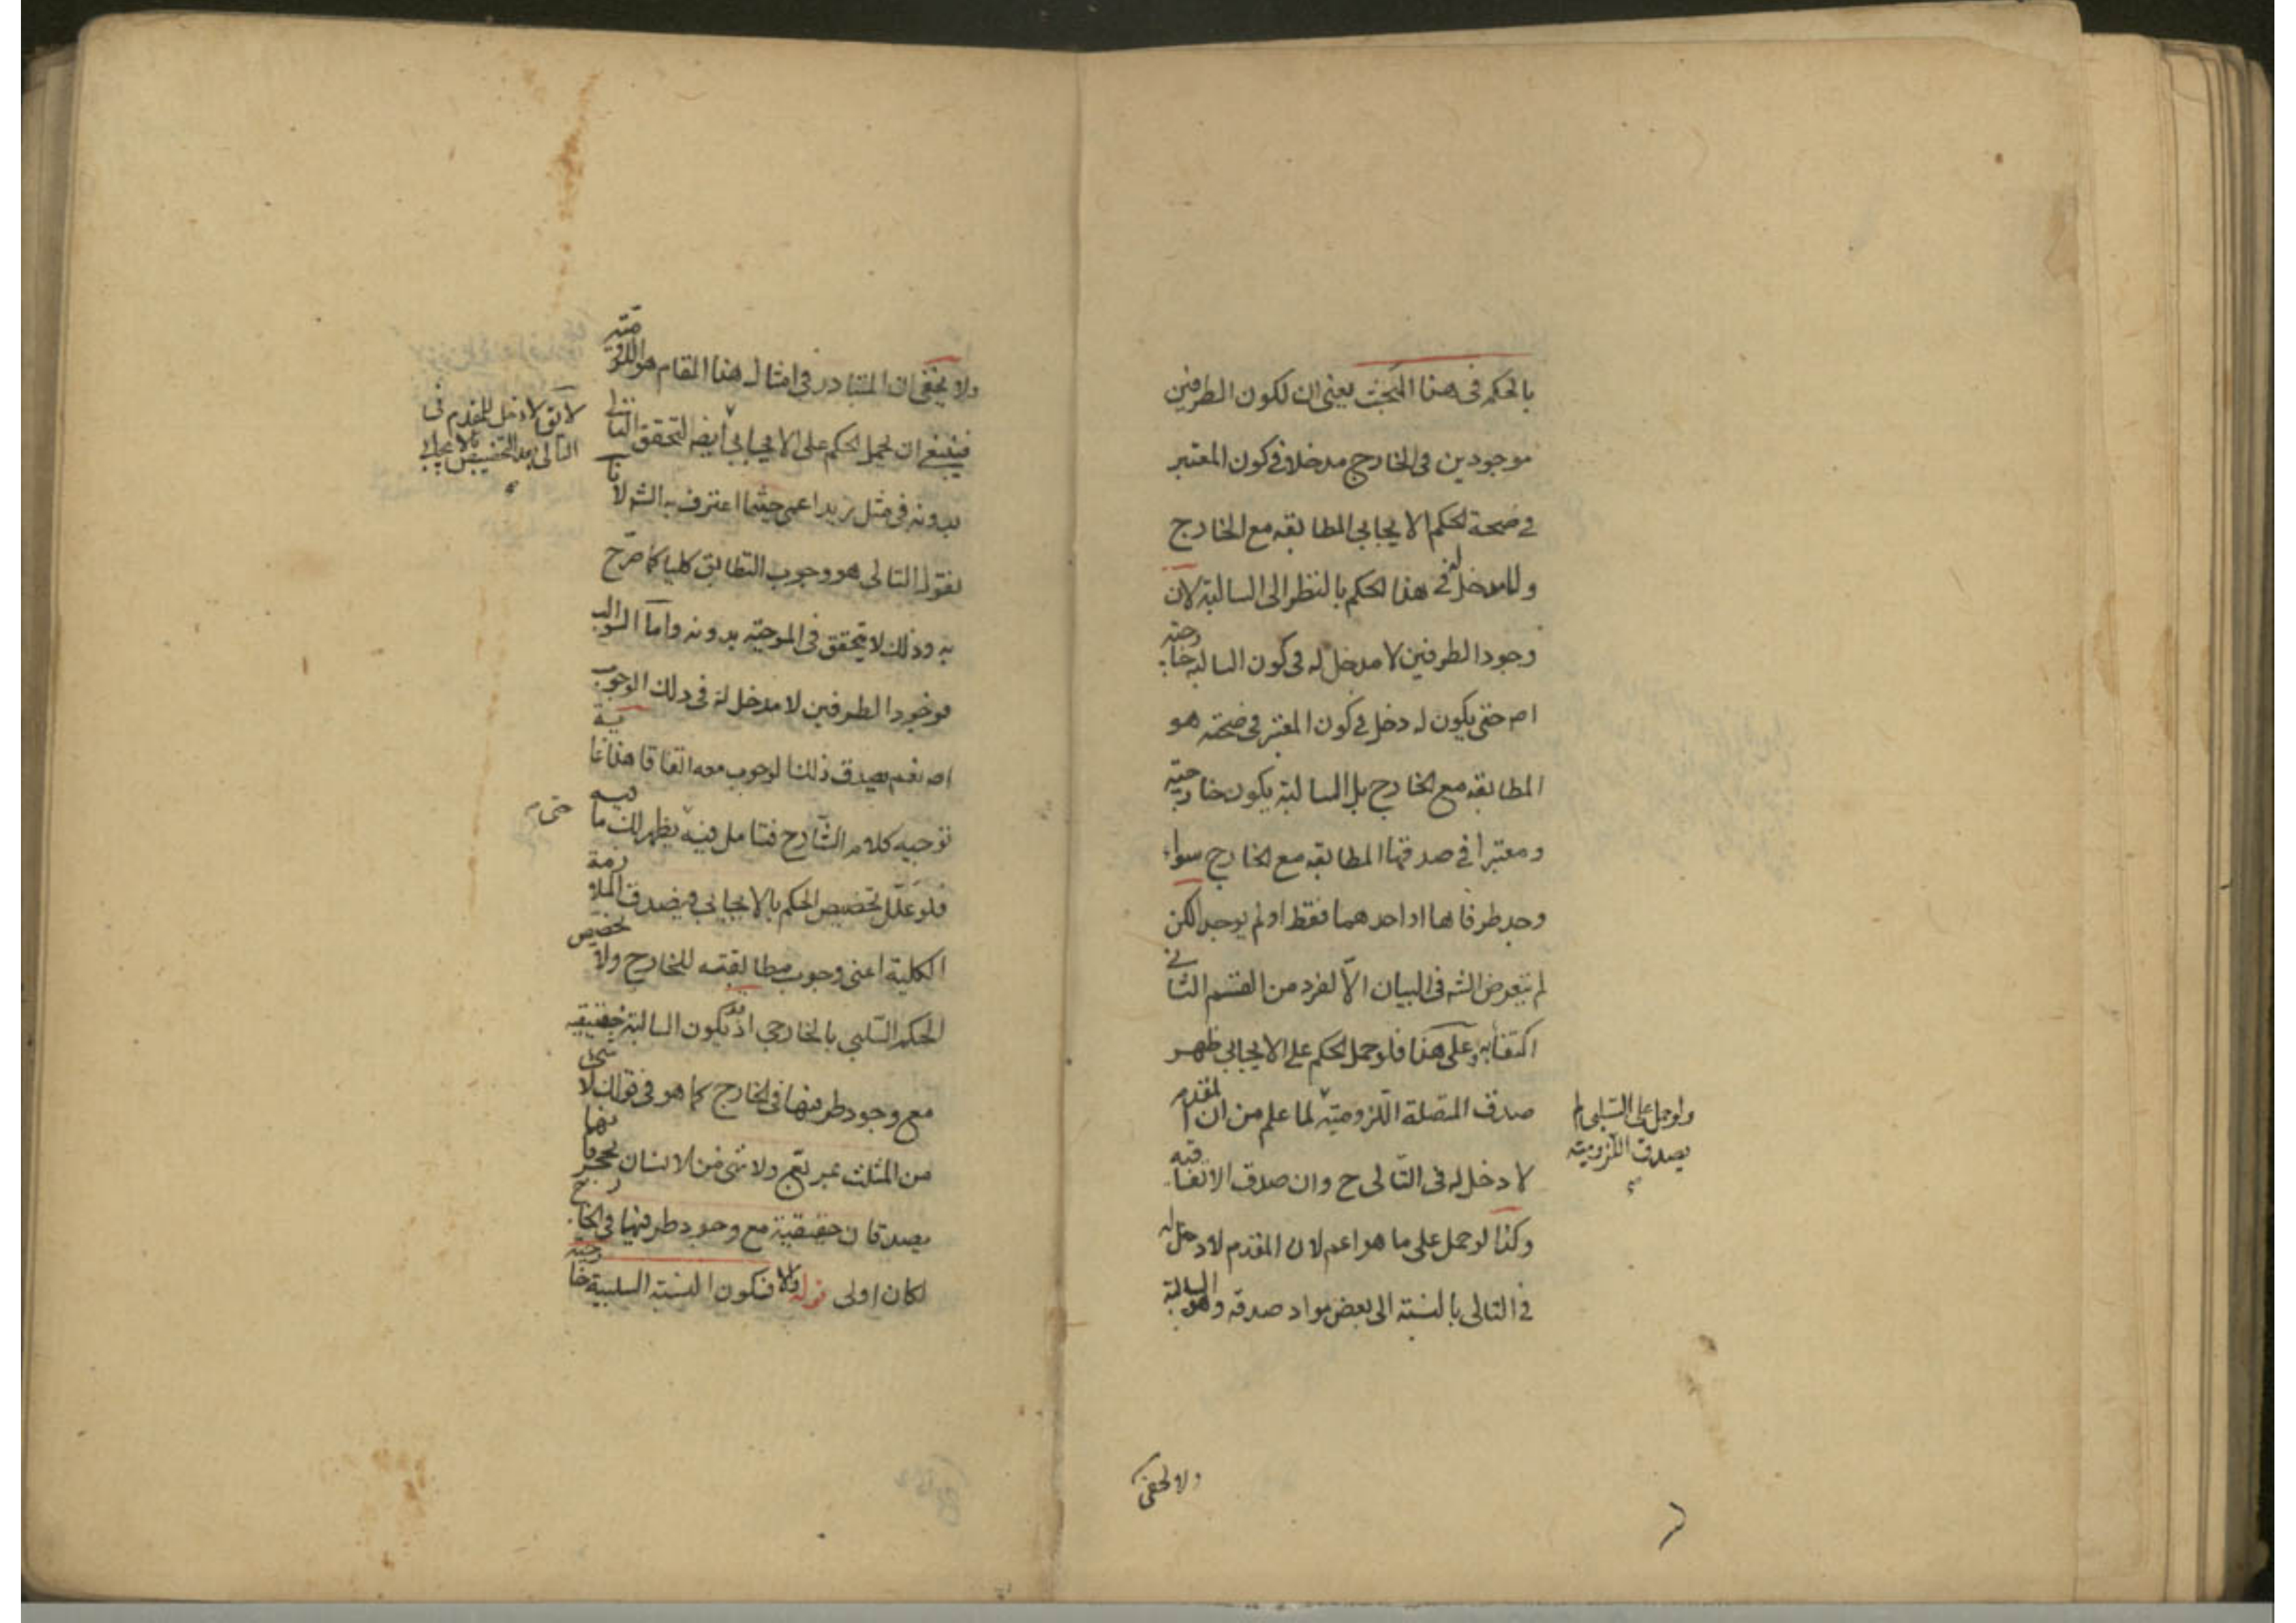 بالحكم فى هذا المبحث يعنى ان لكون الطرفين
موجودين فى الخارج مدخلا فى كون المعتبر
فى صحة الحكم الايجابى المطابقة مع الخارج
فى هذا الحكم بالنظر الى السالبة لان
وجود الطرفين لا مدخل له فى كون السالبة خارجية
اصلا حتى يكون له دخل فى كون المعتبر فى صحته هو
المطابقة مع الخارج بل السالبة يكون خارجية
ومعتبرا فى صدقها المطابقة مع الخارج سواء
وجد طرفاها او احدهما فقط او لم يوجد لكن
لم يتعرض الشه فى البيان الا لفرد من القسم الثانى
اكتفاء به وعلى هذا فلو حمل الحكم على الايجابى ظهر
صدق المتصلة اللزومية لما علم من ان المقدم
لا دخل له فى التالى ح وان صدق الاتفاقية
وكذا لو حمل على ما هو اعم لان المقدم لا دخل له
فى التالى بالنسبة الى بعض مواد صدقه وهو السالبة
ولو حمل على السلبى لم
يصدق اللزومية
ولا يخفى
ولا يخفى ان المتبادر فى امثال هذا المقام هو اللزومية
فينبغى ان يحمل الحكم على الايجابى ايضا لتحقق التالى
بدونه فى مثل زيد اعمى حيثما اعترف به الشه لانا
نقول التالى هو وجوب التطابق كليا كما صرح
به وذلك لا يتحقق فى الموجبة بدونه واما السوالب
فوجود الطرفين لا مدخل له فى ذلك الوجوب
اصلا نعم يصدق ذلك الوجوب معه اتفاقا هذا غاية
توجيه كلام الشارح فتامل فيه يظهر لك ما فيه
فلو علل تخصيص الحكم بالايجابى فيصدق الملازمة
الكلية اعنى وجوب مطابقته للخارج ولا تخصيص
الحكم السلبى بالخارجى اذ قد يكون السالبة حقيقية
مع وجود طرفيها فى الخارج كما هو فى قولك لا شئ
من المثلث بمربع ولا شئ من الانسان بحجر
يصدقان حقيقية مع وجود طرفيها فى الخارج
لكان اولى قوله والا فتكون النسبة السلبية خارجية
لا يق لا دخل للمقدم فى
التالى بعد التخصيص بالايجابى